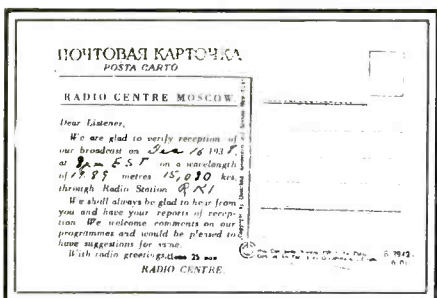 ПОЧТОВАЯ КАРТОЧКА
POSTA CARTO
RADIO CENTRE MOSCOW.
Dear Listener,
We are glad to verify reception of
our broadcast on Dec 16 1938,
at 8pm EST on a wavelength
of 19.89 metres 15,080 kcs,
through Radio Station RKI
We shall always be glad to hear from
you and have your reports of recep-
tion. We welcome comments on our
programmes and would be pleased to
have suggestions for same.
With radio greetings,
RADIO CENTRE.